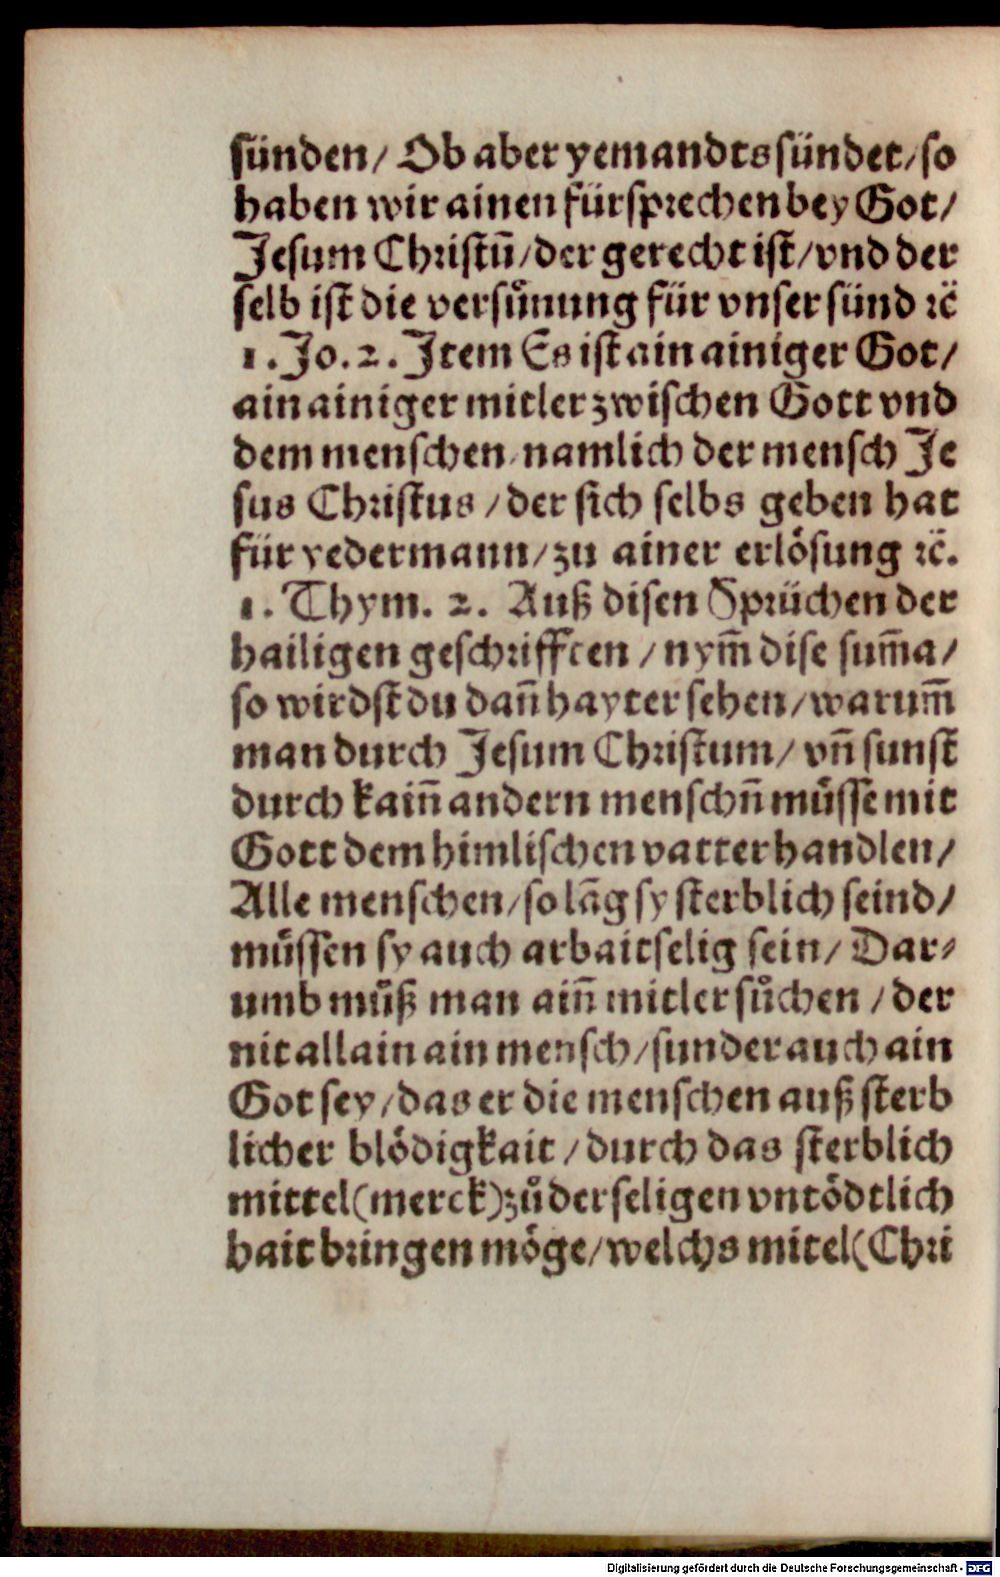 sünden/ Ob aber yemandts sündet/ so
haben wir ainen fürsprechen bey Got/
Jesum Christū/ der gerecht ist/ vnd der
selb ist die versůnung für vnser sünd ꝛc̈
1. Jo. 2. Item Es ist ain ainiger Got/
ain ainiger mitler zwischen Gott vnd
dem menschen/ namlich der mensch Je
sus Christus / der sich selbs geben hat
für yedermann/ zu ainer erlösung ꝛc̈.
1. Thym. 2. Auß disen Sprüchen der
hailigen geschrifften / nym̄ dise sum̄a/
so wirdst du dan̄ hayter sehen/ warum̄
man durch Jesum Christum/ vn̄ sunst
durch kain̄ andern menschn̄ müsse mit
Gott dem himlischen vatter handlen/
Alle menschen/ so lāg sy sterblich seind/
müssen sy auch arbaitselig sein/ Dar⸗
umb můß man ain̄ mitler sůchen / der
nit allain ain mensch/ sunder auch ain
Got sey/ das er die menschen auß sterb
licher blödigkait / durch das sterblich
mittel (merck) zů der seligen vntödtlich
hait bringen möge/ welchs mitel (Chri
Digitalisierung gefördert durch die Deutsche Forschungsgemeinschaft - DFG